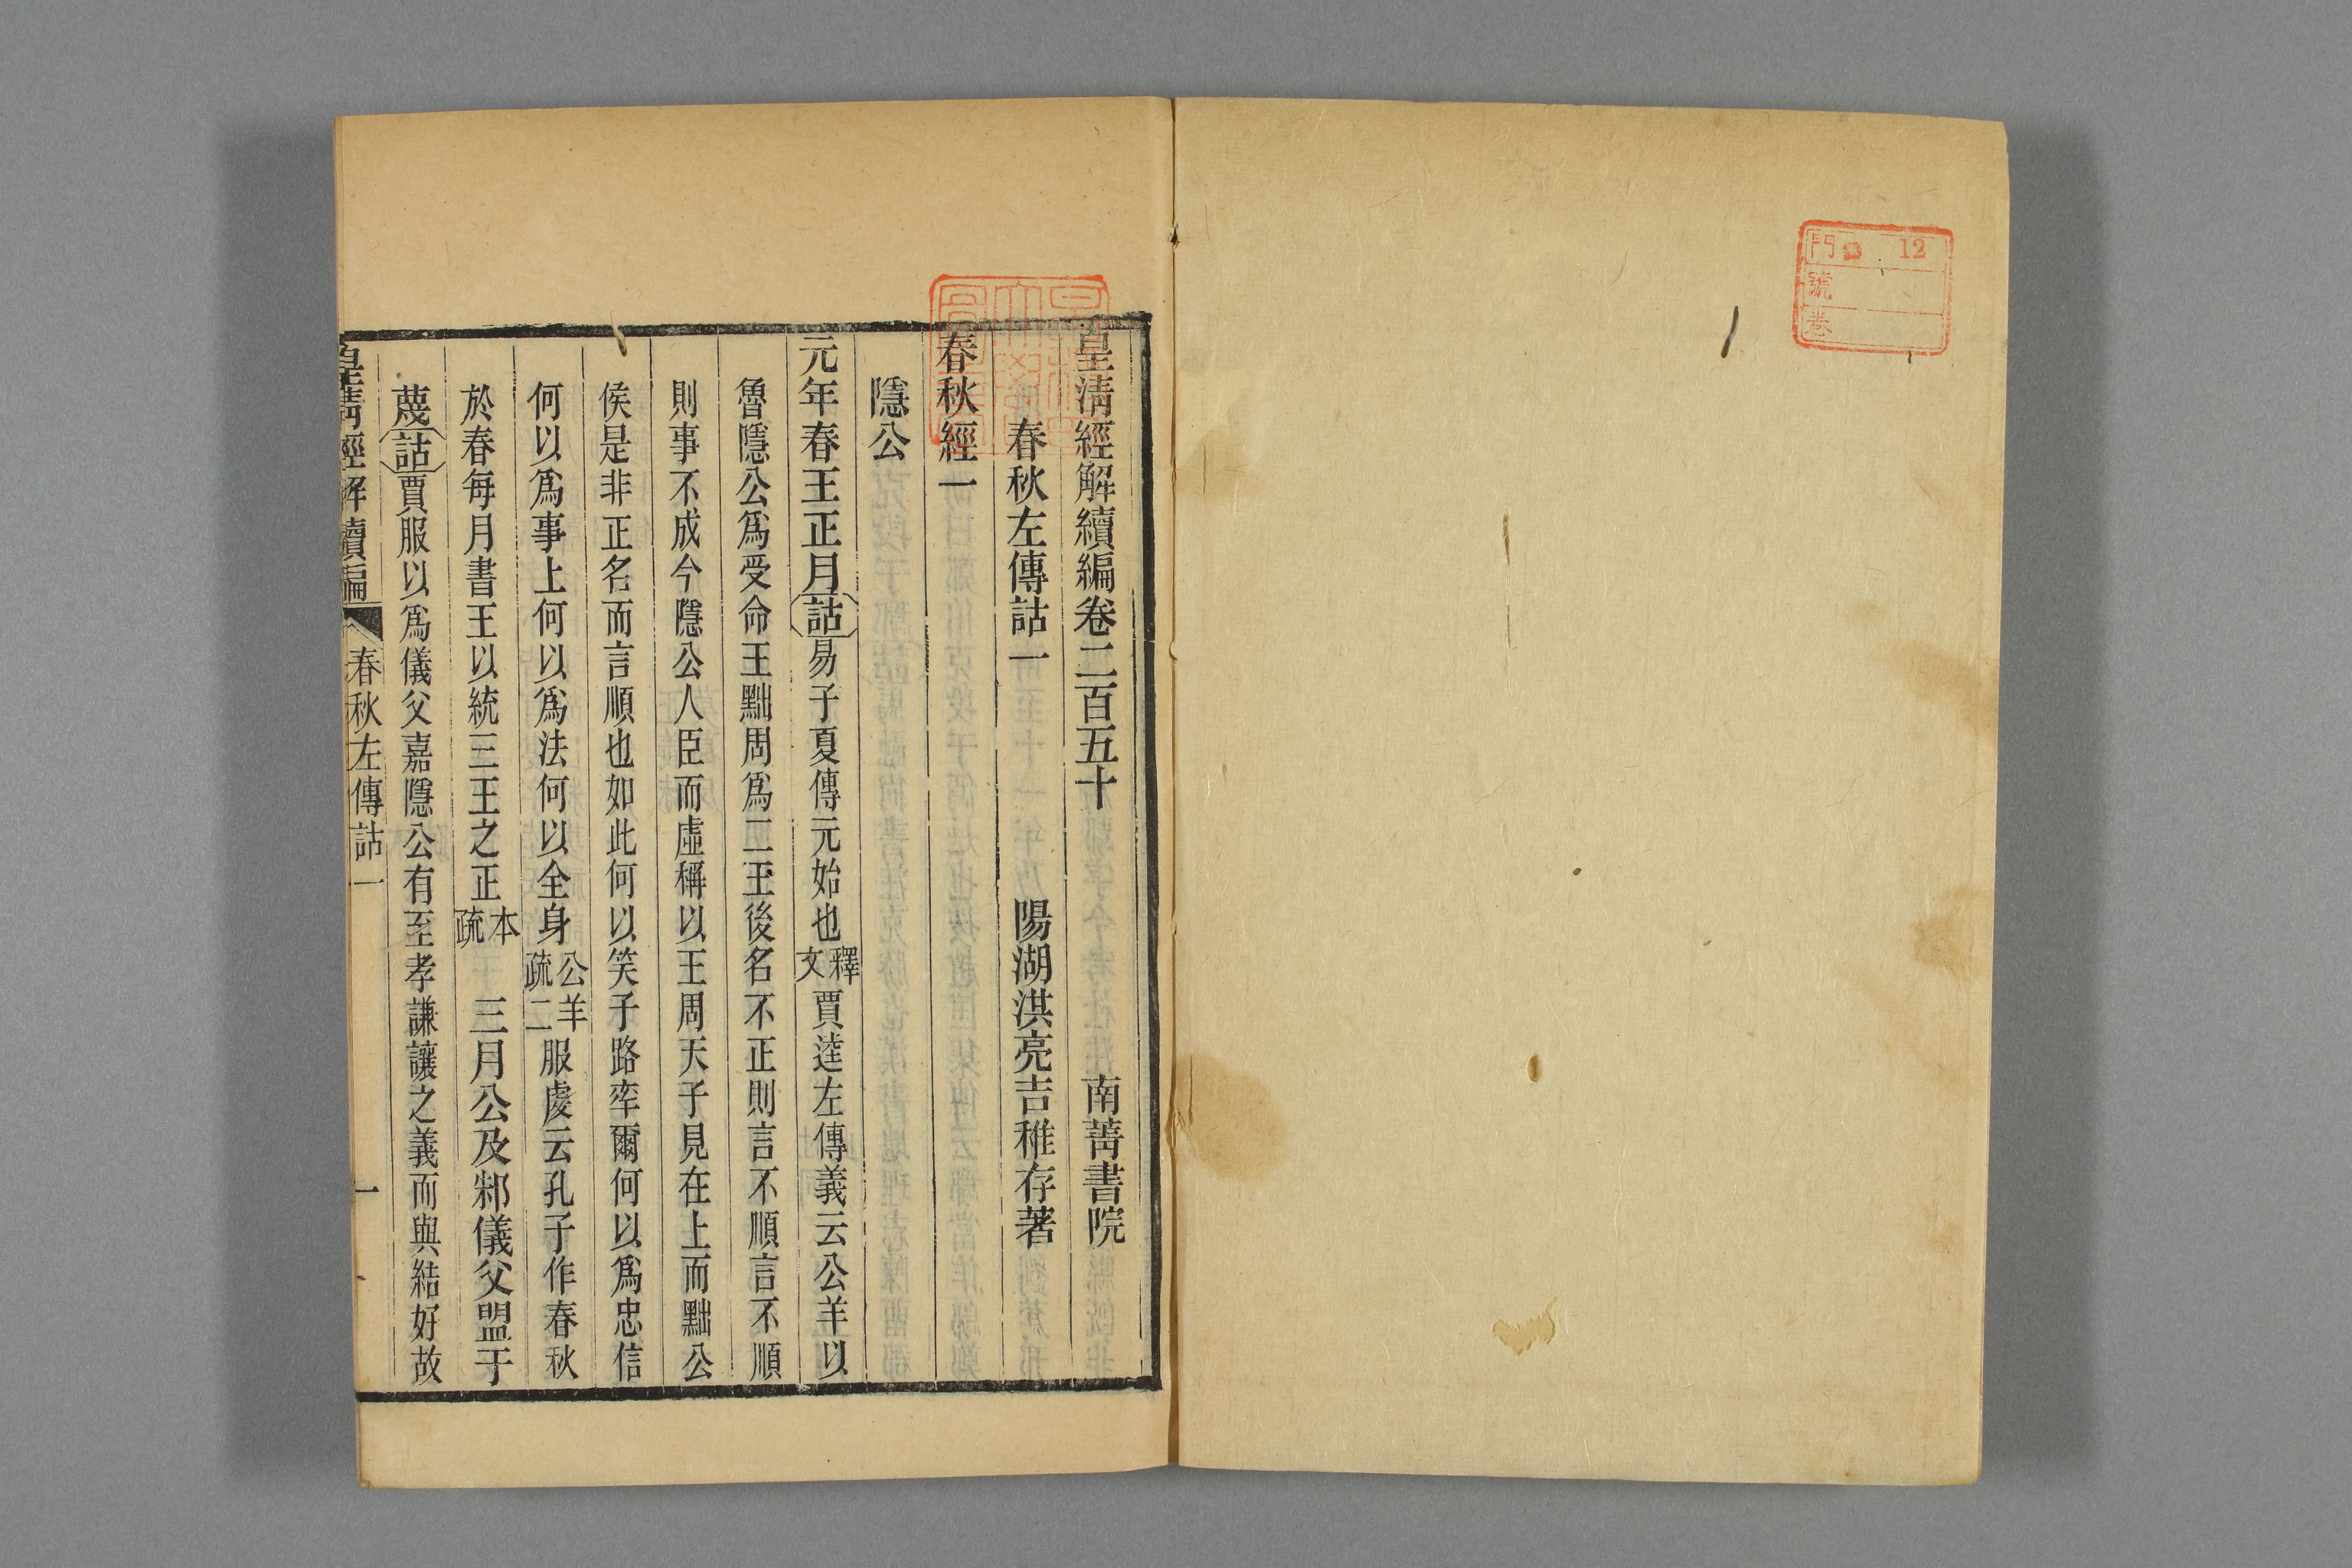 門 12
號
卷
皇清經解續編卷二百五十 南菁書院
春秋左傳詁一 陽湖洪亮吉稚存著
春秋經一
隱公
元年春王正月詁易子夏傳元始也釋文賈逵左傳義云公羊以
魯隱公爲受命王黜周爲二王後名不正則言不順言不順
則事不成今隱公人臣而虛稱以王周天子見在上而黜公
侯是非正名而言順也如此何以笑子路率爾何以爲忠信
何以爲事上何以爲法何以全身公羊疏二服虔云孔子作春秋
於春每月書王以統三王之正本疏 三月公及邾儀父盟于
蔑詁賈服以爲儀父嘉隱公有至孝謙讓之義而與結好故
皇清經解續編 春秋左傳詁一 一